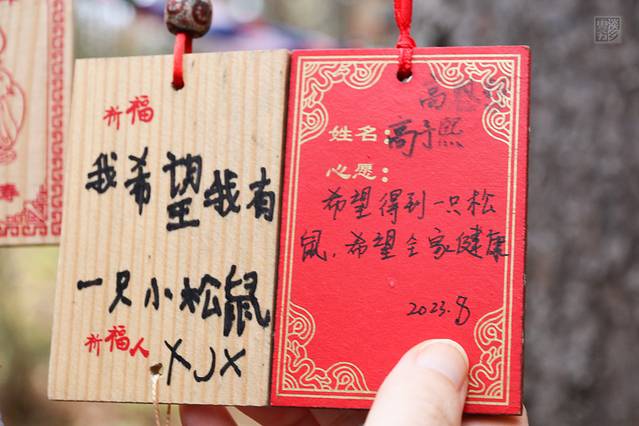 祈福
我希望我有
一只小松鼠
祈福人
XJX
姓名:
高子熙
心愿:
希望得到一只松
鼠,希望全家健康
2023.8
寿